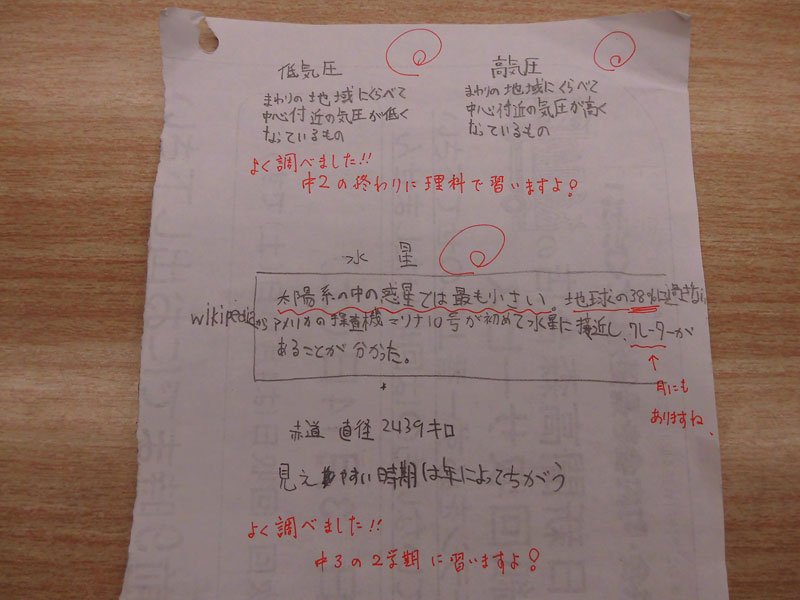 低気圧
まわりの地域にくらべて
中心付近の気圧が低く
なっているもの
高気圧
まわりの地域にくらべて
中心付近の気圧が高く
なっているもの
よく調べました!!
中2の終わりに理科で習いますよ!
水星
太陽系の中の惑星では最も小さい。地球の38%に過ぎない
wikipediaから アメリカの探査機マリナ10号が初めて水星に接近し、クレーターが
あることが分かった。
月にも
ありますね。
赤道 直径2439キロ
見えやすい時期は年によってちがう
よく調べました!!
中3の2学期に習いますよ!